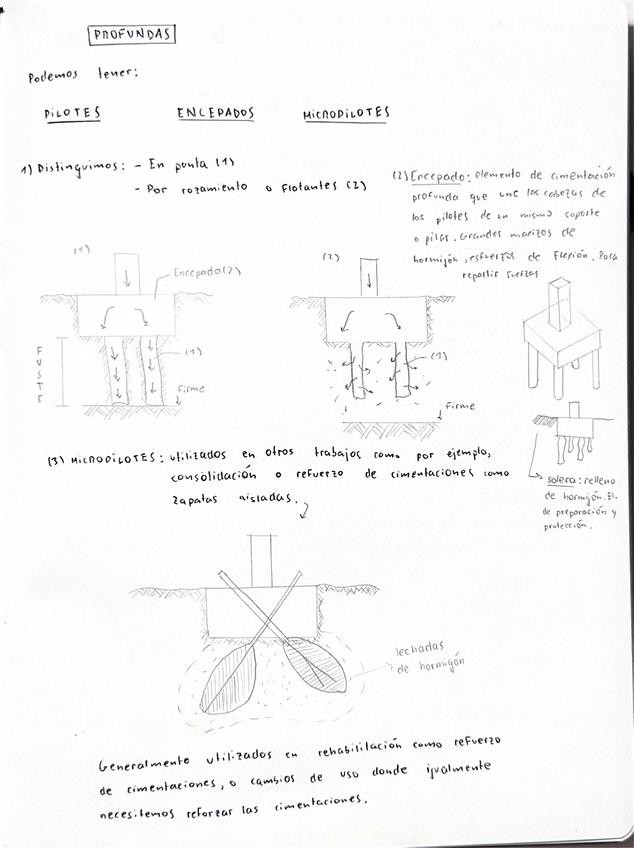 PROFUNDAS
Podemos tener:
PILOTES ENCEPADOS MICROPILOTES
1) Distinguimos: - En punta (1)
- Por rozamiento o flotantes (2)
(2) Encepado: elemento de cimentación
profunda que une las cabezas de
los pilotes de un mismo soporte
o pilar. Grandes macizos de
hormigón, esfuerzos de flexión. Para
repartir fuerzas
(1)
Encepado (2)
(1)
FUSTE
Firme
(2)
(1)
Firme
solera: relleno
de hormigón. El.
de preparación y
protección.
(3) MICROPILOTES: utilizados en otros trabajos como por ejemplo,
consolidación o refuerzo de cimentaciones como
zapatas aisladas.
lechadas
de hormigón
Generalmente utilizados en rehabilitación como refuerzo
de cimentaciones, o cambios de uso donde igualmente
necesitemos reforzar las cimentaciones.